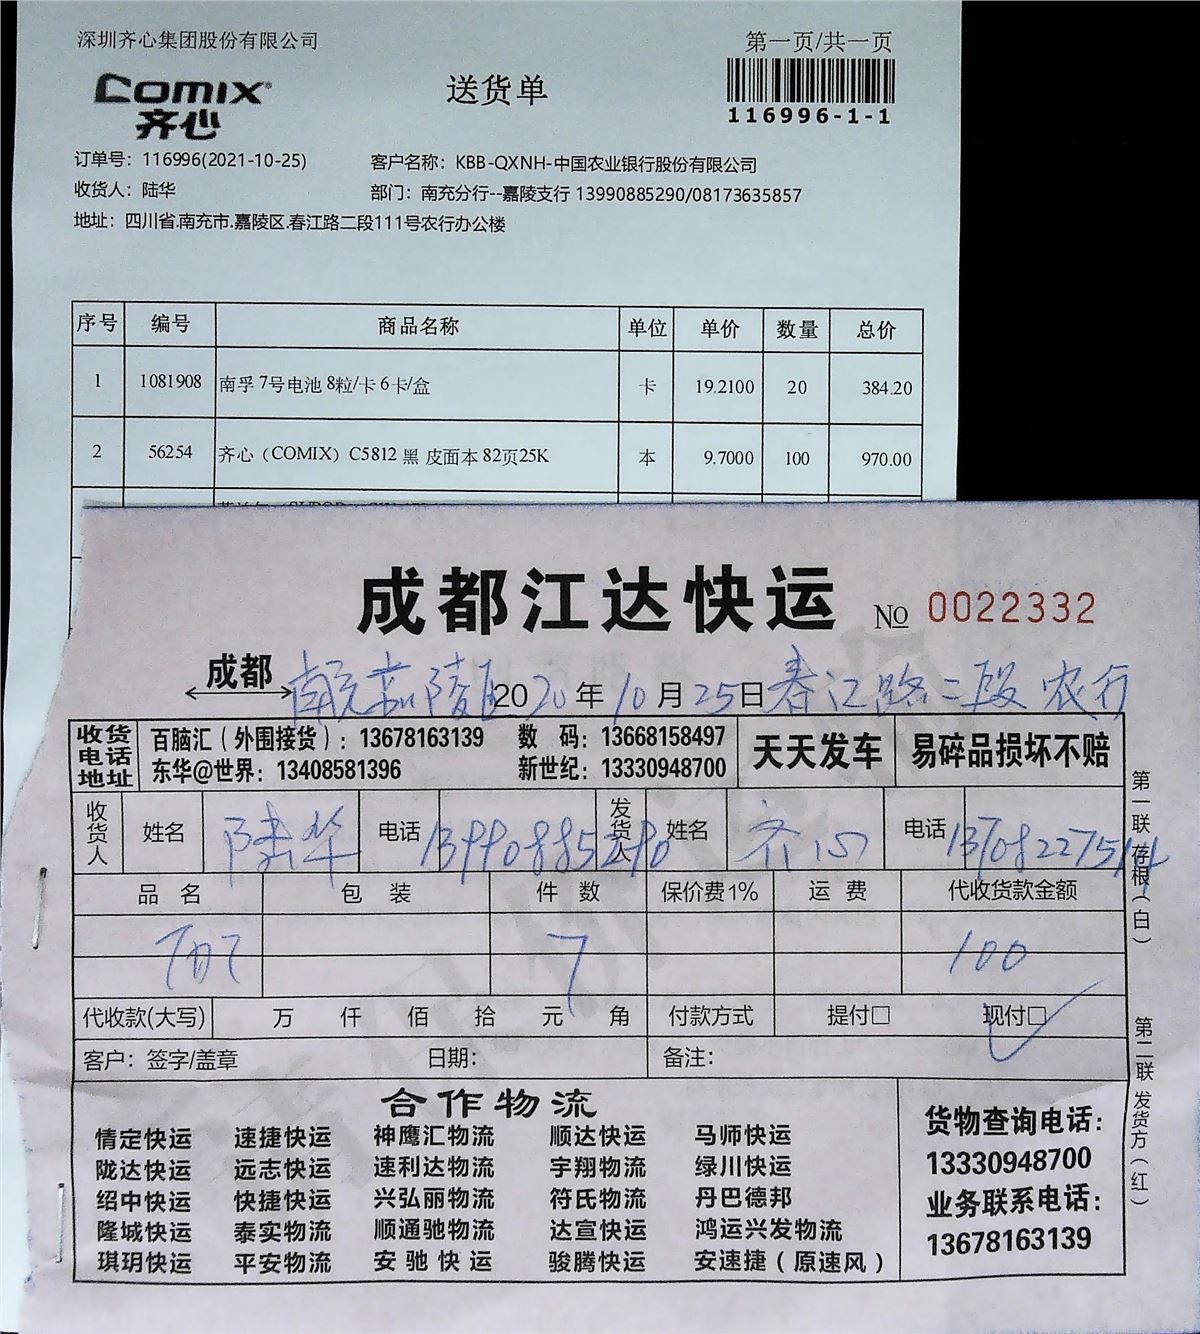 深圳齐心集团股份有限公司
第一页/共一页
COMIX
齐心
送货单
116996-1-1
订单号：116996(2021-10-25)
客户名称：KBB-QXNH-中国农业银行股份有限公司
收货人：陆华
部门：南充分行--嘉陵支行 13990885290/08173635857
地址：四川省.南充市.嘉陵区.春江路二段111号农行办公楼
序号 编号 商品名称 单位 单价 数量 总价
1 1081908 南孚 7号电池 8粒/卡 6卡/盒 卡 19.2100 20 384.20
2 56254 齐心（COMIX）C5812 黑 皮面本 82页25K 本 9.7000 100 970.00
成都江达快运
No 0022332
成都 南充嘉陵区 2020年10月25日 春江路二段 农行
收货电话地址
百脑汇（外围接货）：13678163139 数 码：13668158497
东华@世界：13408581396 新世纪：13330948700
天天发车
易碎品损坏不赔
收货人 姓名 陆华 电话 13990885290 发货人 姓名 齐心 电话 13708227514
品名 包装 件数 保价费1% 运费 代收货款金额
7 100
代收款(大写) 万 仟 佰 拾 元 角 付款方式 提付□ 现付□
客户：签字/盖章 日期： 备注：
合作物流
情定快运 速捷快运 神鹰汇物流 顺达快运 马师快运
陇达快运 远志快运 速利达物流 宇翔物流 绿川快运
绍中快运 快捷快运 兴弘丽物流 符氏物流 丹巴德邦
隆城快运 泰实物流 顺通驰物流 达宣快运 鸿运兴发物流
琪玥快运 平安物流 安驰快运 骏腾快运 安速捷（原速风）
货物查询电话：
13330948700
业务联系电话：
13678163139
第一联 存根（白）
第二联 发货方（红）